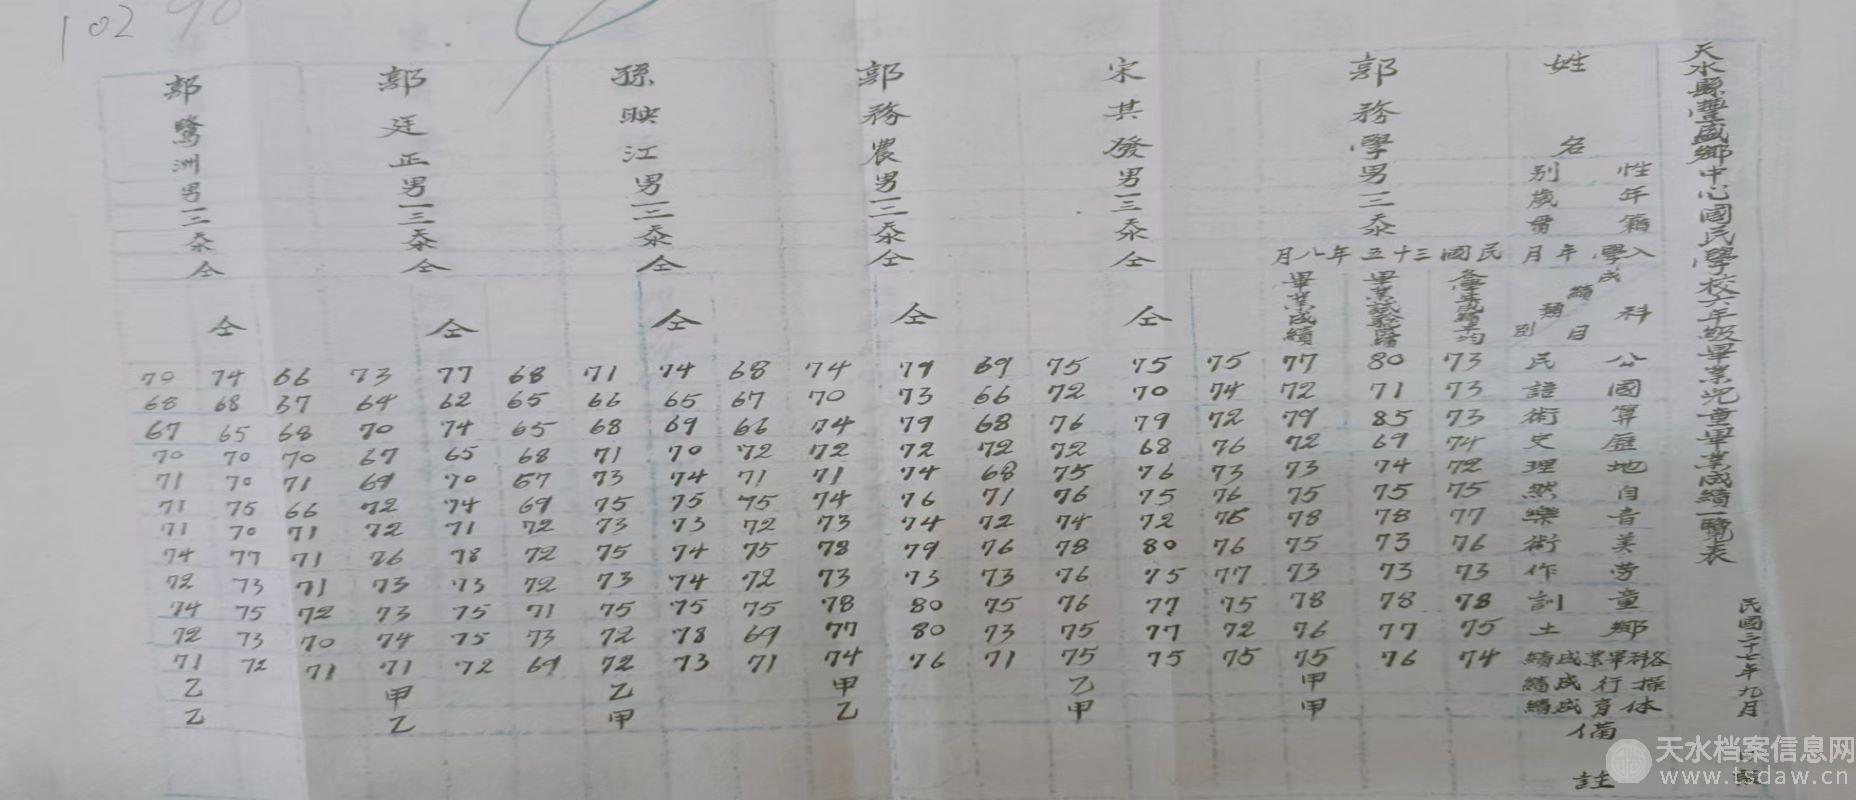 天水縣豐盛鄉中心國民學校六年級畢業兒童畢業成績一覽表
民國三十七年九月 日
姓名
性別
年歲
籍貫
入學年月
成績類別
科目
公民
國語
算術
歷史
地理
自然
音樂
美術
勞作
童訓
鄉土
各科畢業成績
操行成績
体育成績
備註
郭務學 男 一三 天水
民國三十五年八月
各學年成績平均
73 73 73 74 72 75 77 76 73 78 75 74
畢業試驗成績
80 71 85 69 74 75 78 73 73 78 77 76
畢業成績
77 72 79 72 73 75 78 75 73 78 76 75
甲 甲
宋其發 男 一三 天水 仝
仝
75 74 72 76 73 76 76 76 77 75 72 75
75 70 79 68 76 75 72 80 75 77 77 75
75 72 76 72 75 76 74 78 76 76 75 75
乙 甲
郭務農 男 一二 天水 仝
仝
69 66 68 72 68 71 72 76 73 75 73 71
79 73 79 72 74 76 74 79 73 80 80 76
74 70 74 72 71 74 73 78 73 78 77 74
甲 乙
孫映江 男 一二 天水 仝
仝
68 67 66 72 71 75 72 75 72 75 69 71
74 65 69 70 74 75 73 74 74 75 78 73
71 66 68 71 73 75 73 75 73 75 72 72
乙 甲
郭廷正 男 一三 天水 仝
仝
68 65 65 68 67 69 72 72 72 71 73 69
77 62 74 65 70 74 71 78 73 75 75 72
73 64 70 67 69 72 72 76 73 73 74 71
甲 乙
郭鷺洲 男 一三 天水 仝
仝
66 67 68 70 71 66 71 71 71 72 70 71
74 68 65 70 70 75 70 77 73 75 73 72
70 68 67 70 71 71 71 74 72 74 72 71
乙 乙
102 90
天水档案信息网
www.tsdaw.cn